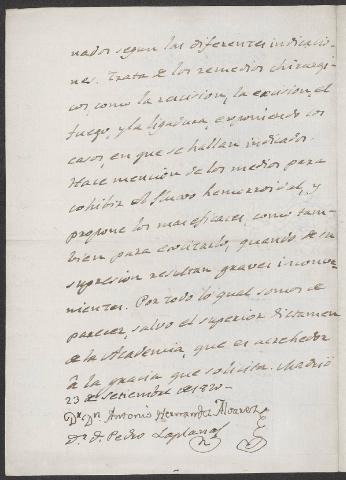 nados segun las diferentes indicacio-
nes. Trata de los remedios chirurgi-
cos, como la recision, la excision, el
fuego, y la ligadura, exponiendo los
casos, en que se hallan indicados.
Hace mencion de los medios para
cohibir el fluxo hemorroidal, y
propone los mas eficaces, como tam-
bien para excitarlo, quando de su
supresion resultan graves inconve-
nientes. Por todo lo qual somos de
parecer, salvo el superior dictamen
de la Academia, que es acrehedor
à la gracia que solicita. Madrid
23 de Setiembre de 1820-
Dr. Dn. Antonio Hernandez Alvarez
Dr. D. Pedro Laplana